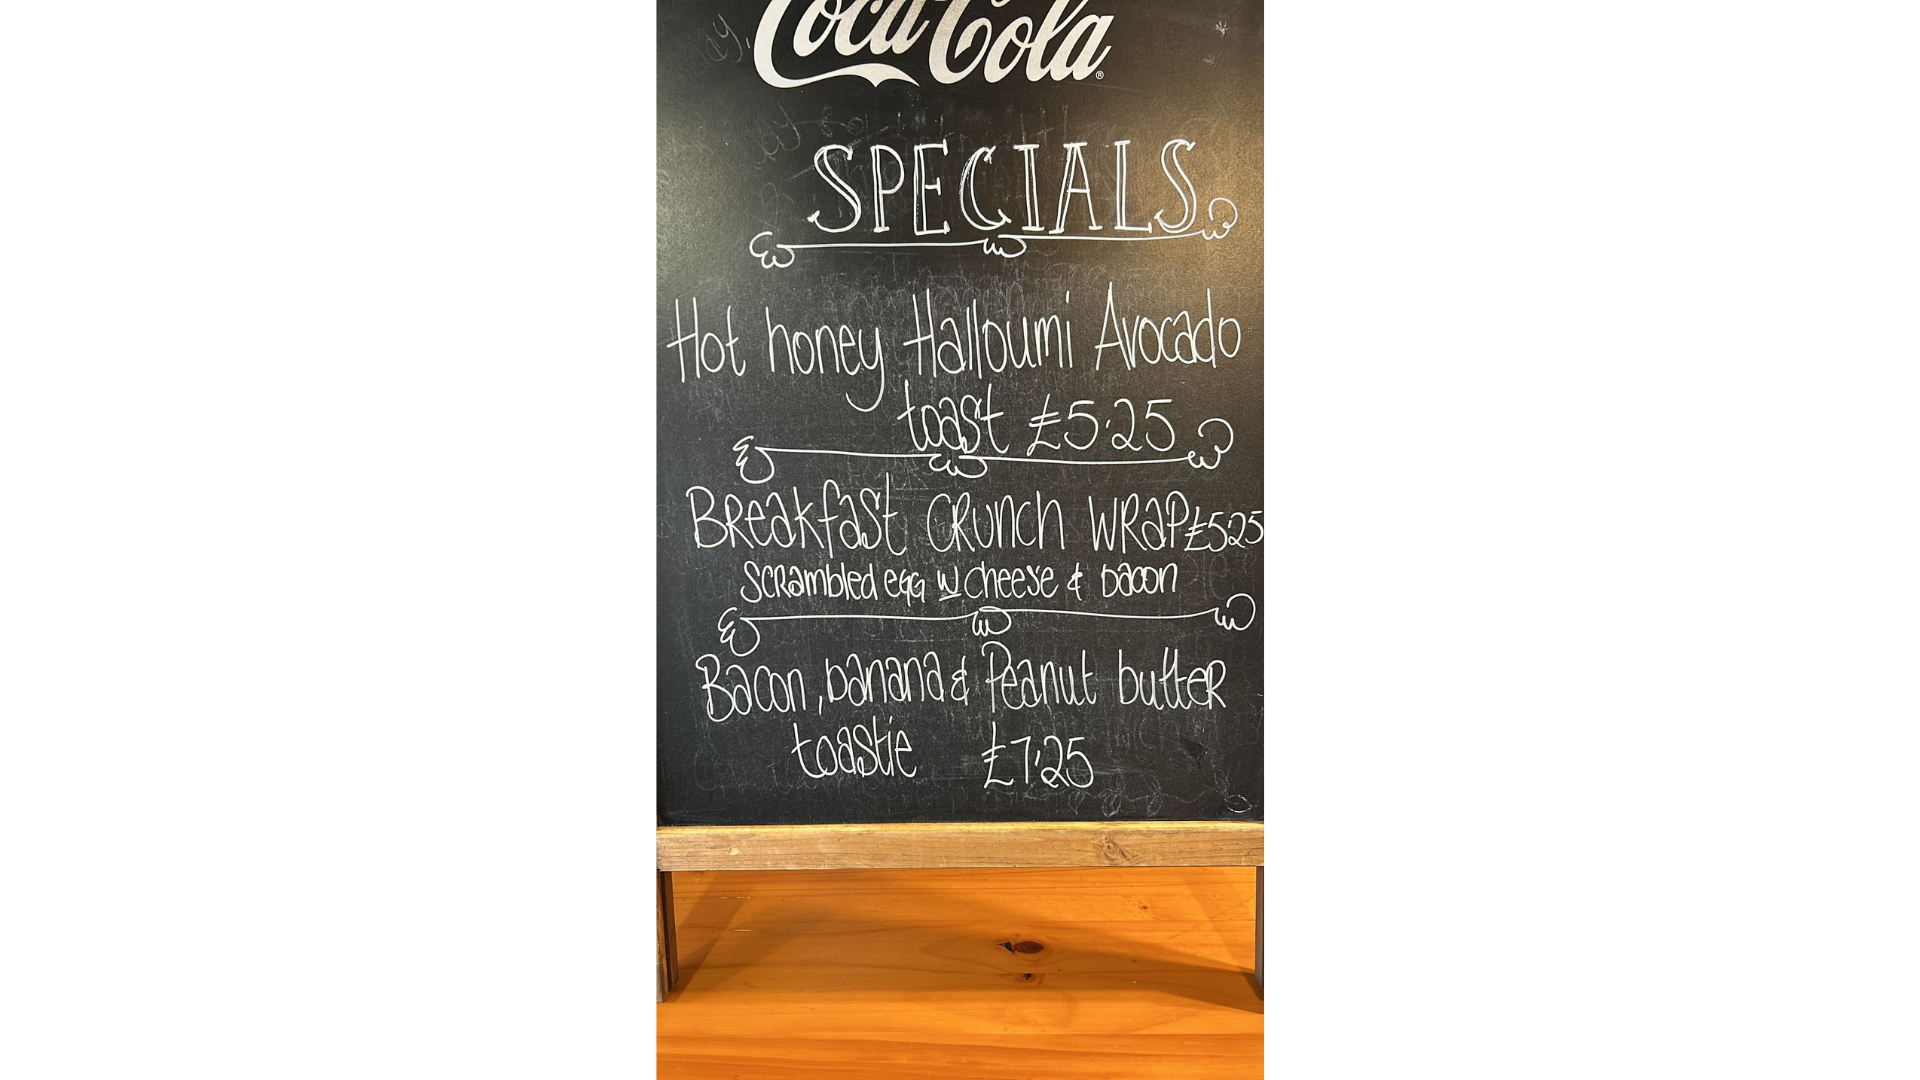 Coca-Cola®
SPECIALS
Hot honey Halloumi Avocado
toast £5.25
Breakfast crunch wrap £5.25
Scrambled egg w cheese & bacon
Bacon, banana & Peanut butter
toastie £7.25